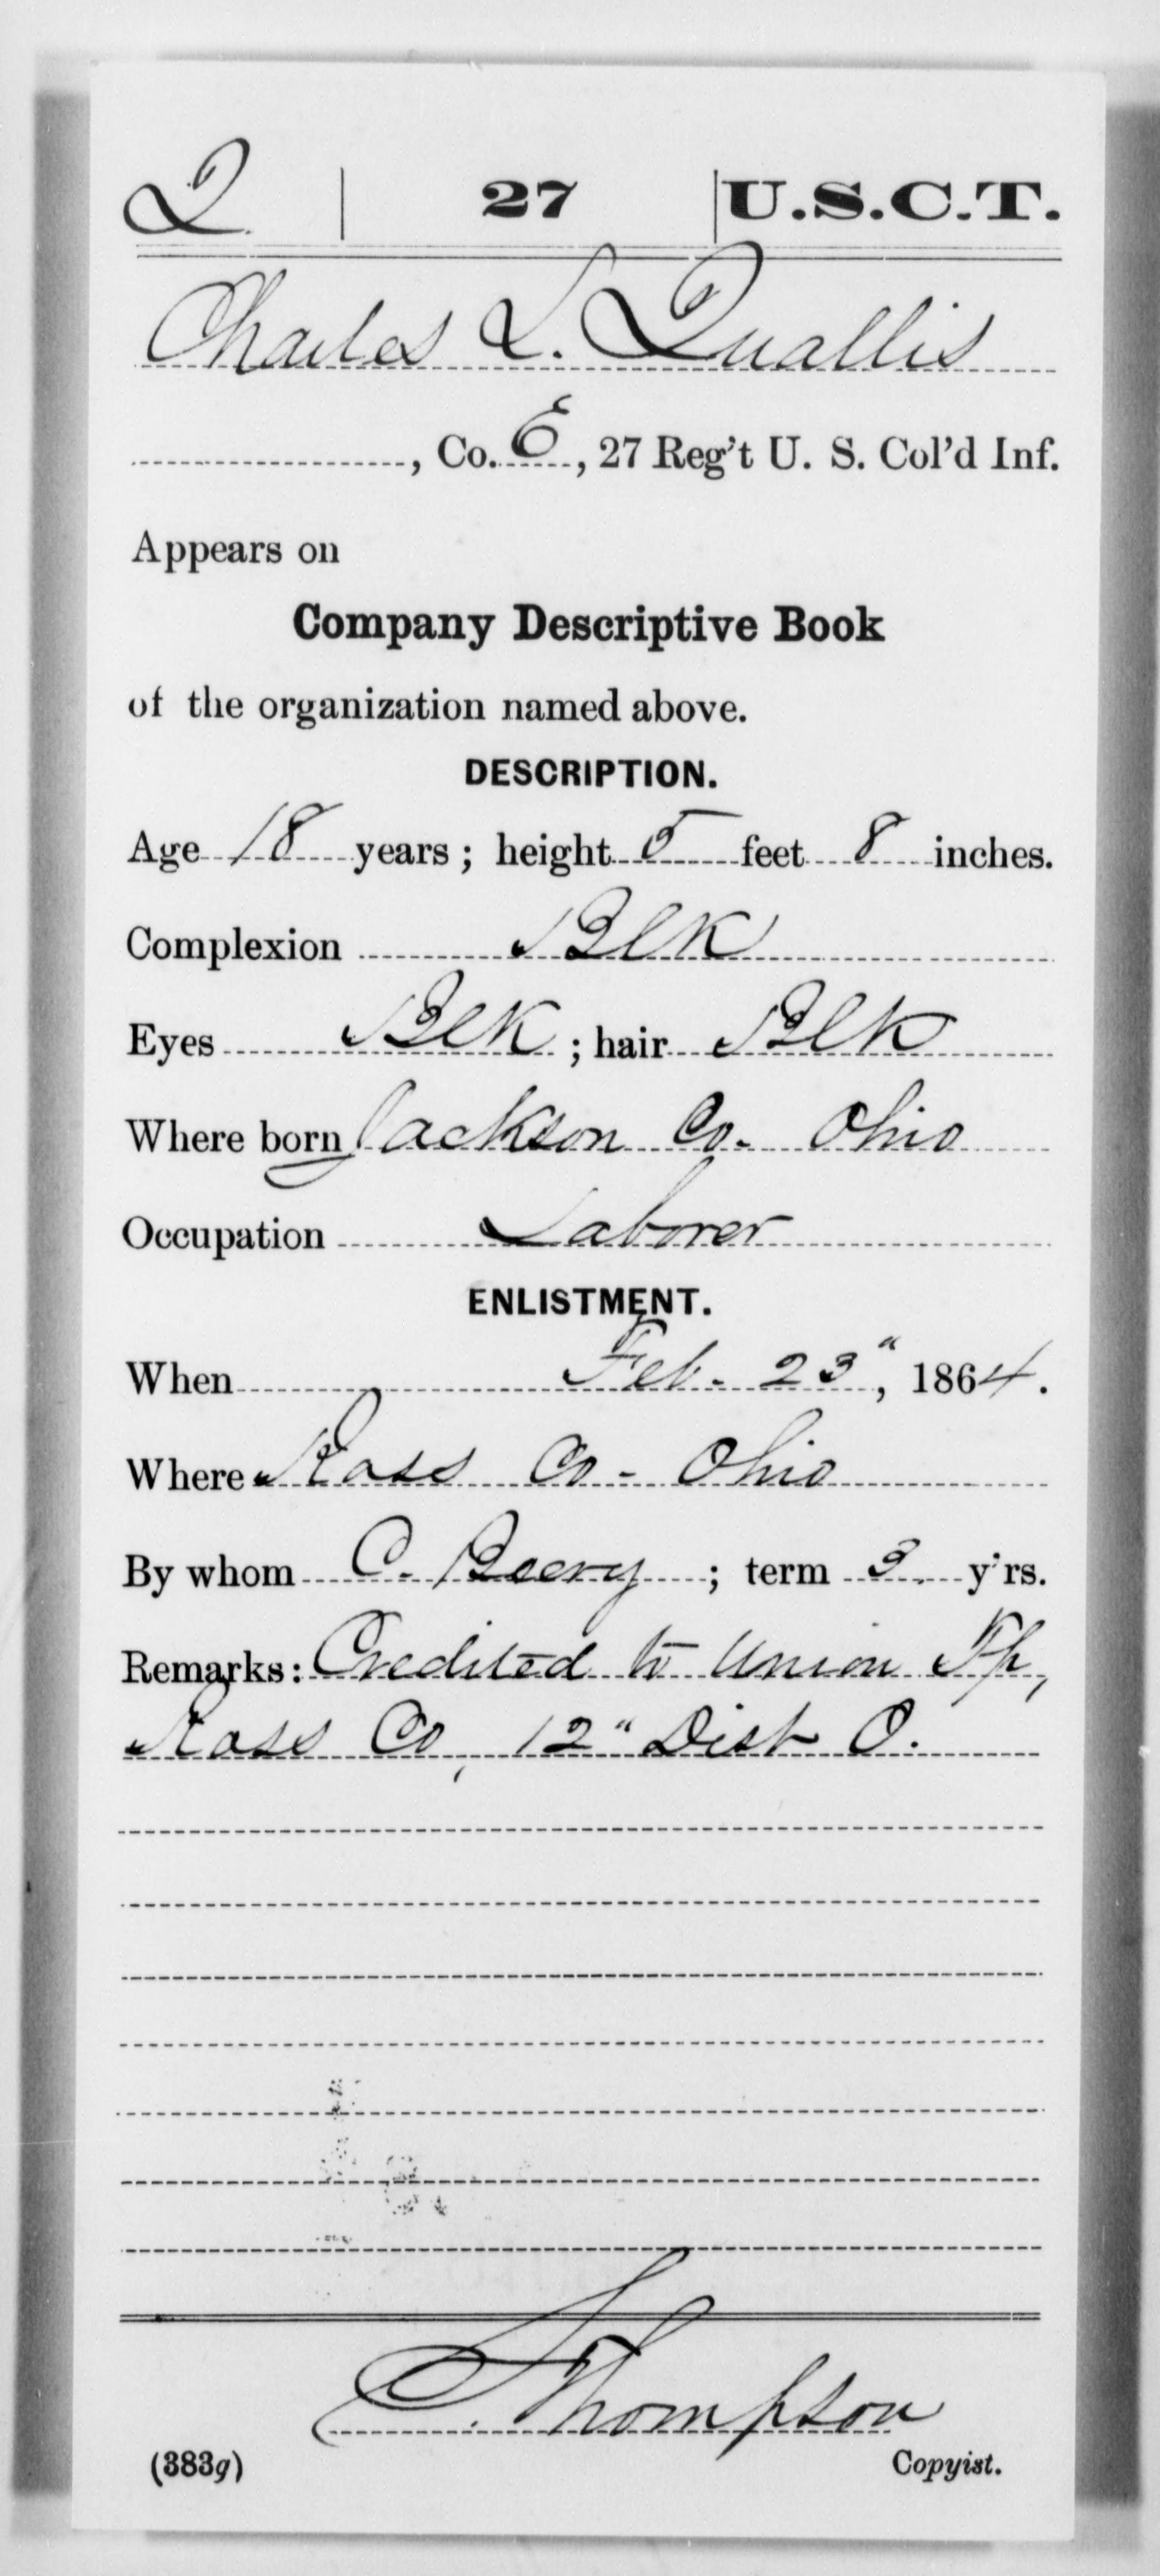 Q | 27 | U.S.C.T.
Charles L. Quallis
, Co. E, 27 Reg't U. S. Col'd Inf.
Appears on
Company Descriptive Book
of the organization named above.
DESCRIPTION.
Age 18 years; height 5 feet 8 inches.
Complexion Blk
Eyes Blk; hair Blk
Where born Jackson Co. Ohio
Occupation Laborer
ENLISTMENT.
When Feb. 23", 1864.
Where Ross Co- Ohio
By whom C. Beery; term 3 y'rs.
Remarks: Credited to Union Tp,
Ross Co, 12" Dist O.
Thompson
(383g) Copyist.